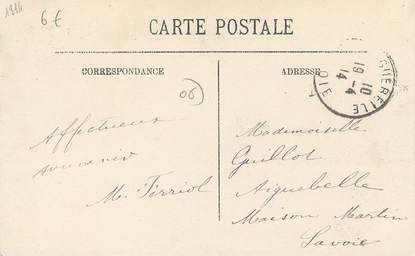 1914
6€
CARTE POSTALE
CORRESPONDANCE
ADRESSE
06
10
19-4
14
OIE
Affectueux
souvenir
M. Ferriol
Mademoiselle
Guillot
Aiguebelle
Maison Martin
Savoie